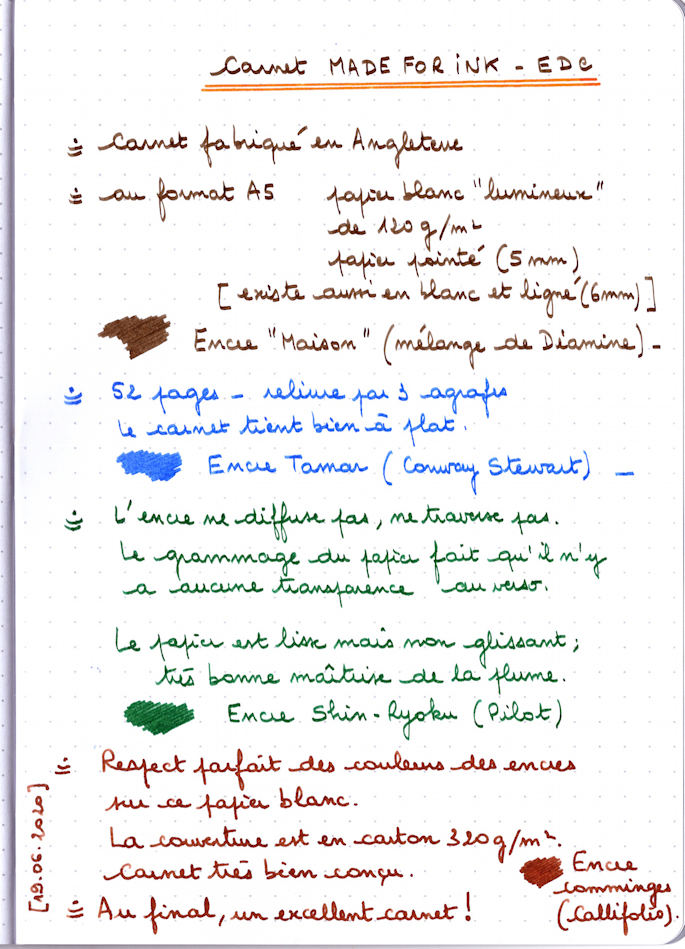 Carnet MADE FOR INK - EDC
Carnet fabriqué en Angleterre
au format A5 papier blanc "lumineux"
de 120 g/m²
papier pointé (5 mm)
[existe aussi en blanc et ligné (6mm)]
Encre "Maison" (mélange de Diamine) -
52 pages - reliure par 3 agrafes
Le carnet tient bien à plat.
Encre Tamar (Conway Stewart) -
L'encre ne diffuse pas, ne traverse pas.
Le grammage du papier fait qu'il n'y
a aucune transparence au verso.
Le papier est lisse mais non glissant ;
très bonne maîtrise de la plume.
Encre Shin-Ryoku (Pilot)
Respect parfait des couleurs des encres
sur ce papier blanc.
La couverture est en carton 320g/m².
Carnet très bien conçu.
Encre
Comminges
(Callifolio).
Au final, un excellent carnet !
[19.06.2020]